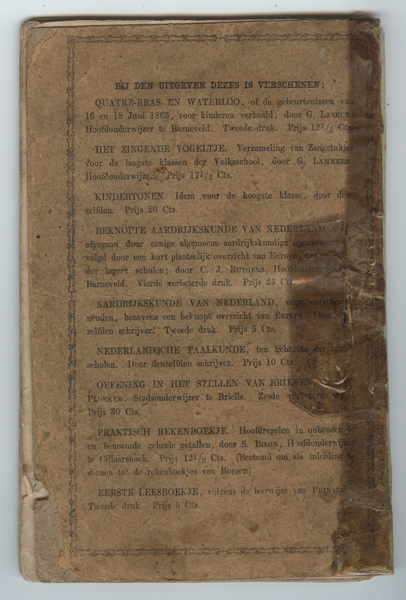 BIJ DEN UITGEVER DEZES IS VERSCHENEN:
QUATRE-BRAS EN WATERLOO, of de gebeurtenissen van
16 en 18 Juni 1865, voor kinderen verhaald, door G.
Hoofdonderwijzer te Barneveld. Tweede druk. Prijs 12½ Cts.
HET ZINGENDE VOGELTJE. Verzameling van Zangstukjes
voor de laagste klassen der Volksschool, door G. LAMMERS
Hoofdonderwijzer. Prijs 17½ Cts.
KINDERTONEN. Idem voor de hoogste klasse, door den
zelfden. Prijs 20 Cts.
BEKNOPTE AARDRIJKSKUNDE VAN NEDERLAND,
afgegaan door eenige algemeene aardrijkskundige
volgd door een kort plaatselijk overzicht van Europa,
der lagere scholen; door C. J. RUTGERS,
Barneveld. Vierde verbeterde druk. Prijs 25 Cts.
AARDRIJKSKUNDE VAN NEDERLAND,
nenden, benevens een beknopt overzicht van Europa. Door
zelfden schrijver. Tweede druk. Prijs 5 Cts.
NEDERLANDSCHE TAALKUNDE, ten behoeve der
scholen. Door denzelfden schrijver. Prijs 10 Cts.
OEFENING IN HET STELLEN VAN BRIEVEN
Stadsonderwijzer te Brielle. Zesde
Prijs 30 Cts.
PRAKTISCH REKENBOEKJE. Hoofdregelen in onbenoemde
en benoemde geheele getallen, door S. BIJON, Hoofdonderwijzer
te Gillaarshoek. Prijs 12½ Cts. (Bestemd om als inleiding te
dienen tot de rekenboekjes van BOESER)
EERSTE LEESBOEKJE, volgens de leerwijze van PRINSEN
Tweede druk. Prijs 5 Cts.